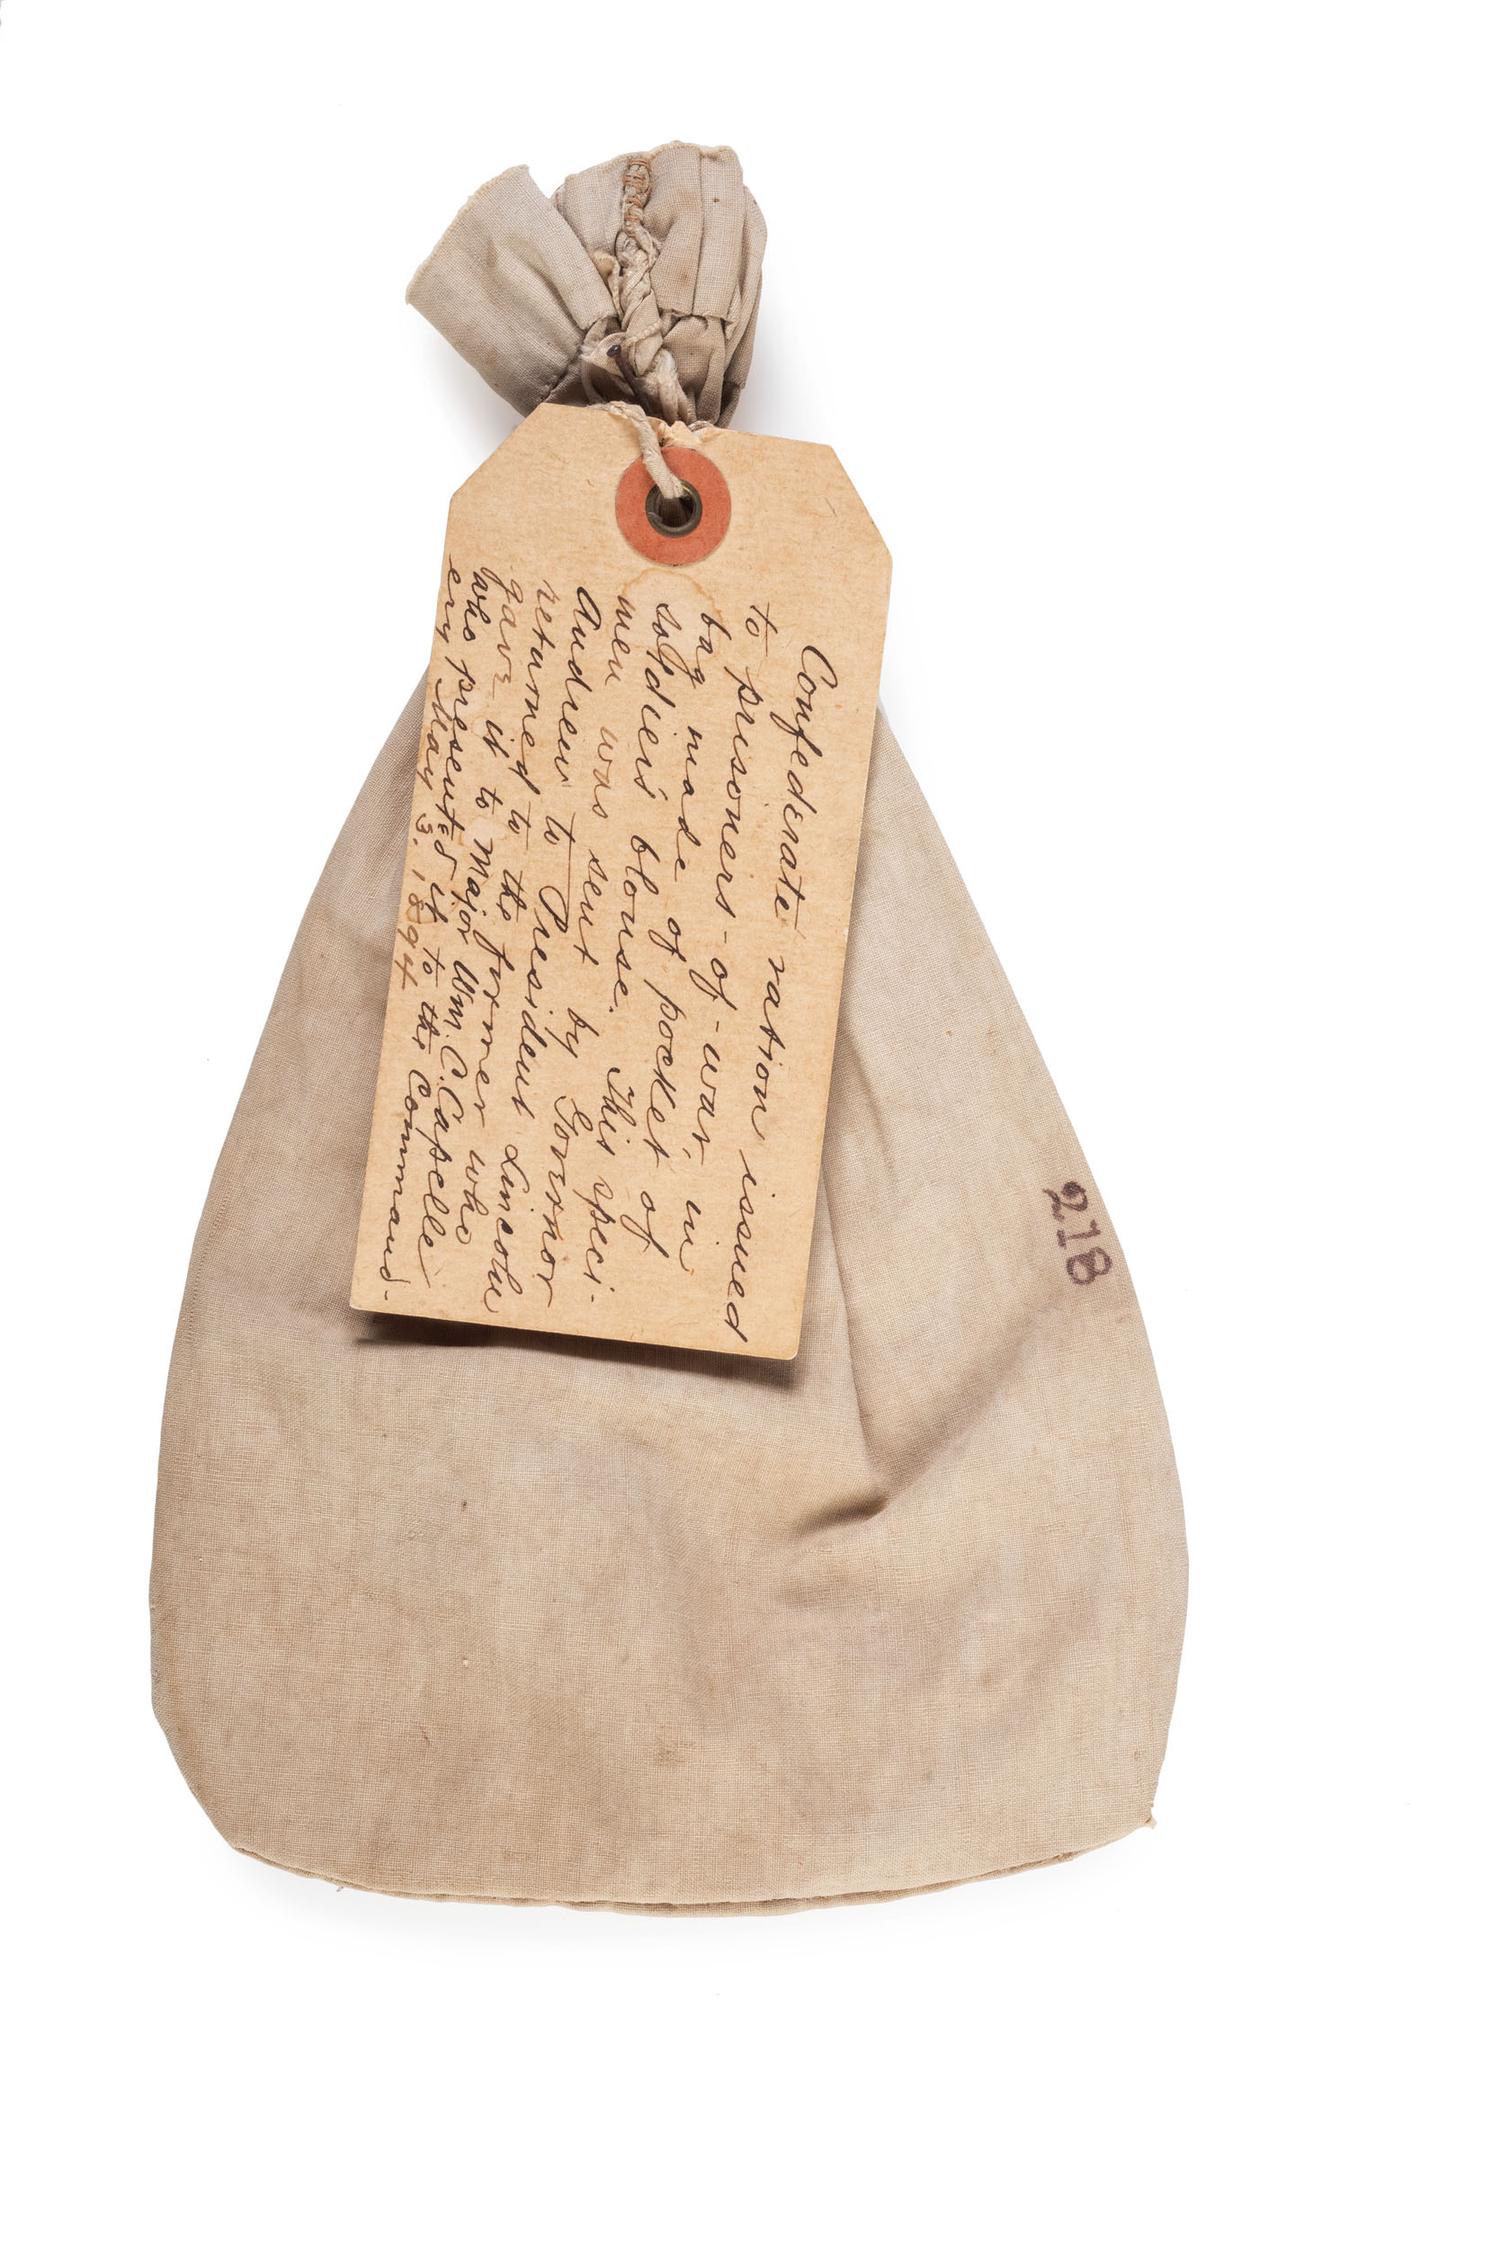 Confederate ration issued
to prisoners-of-war, in
bag made of pocket of
soldier's blouse. This speci-
men was sent by Governor
Andrew to President Lincoln
returned to the former who
gave it to Major Wm. C. Capelle
who presented it to the Command-
ery May 3. 1894
218